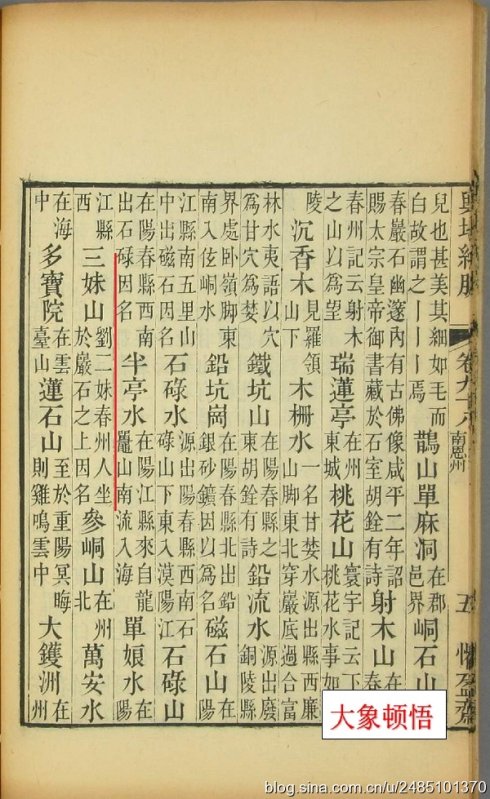 輿地紀勝 卷九十八 南恩州 五 懼盈齋
兒也甚美其細如毛而白故謂之丨丨丨焉 鵲山單麻洞 在郡邑界 峒石山
春巖石幽邃內有古佛像咸平二年詔賜太宗皇帝御書藏於石室胡銓有詩 射木山 春
春州記云射木之山以爲望 瑞蓮亭 在州東城 桃花山 寰宇記云下桃花水事如
陵 沉香木 見羅領山下 木柵水 一名甘婪水源出縣西廉山脚東北穿巖底過合富
林水夷語以穴爲甘穴爲婪 鐵坑山 在陽春縣之東胡銓有詩 鉛流水 源出廢銅陵縣
界處卧嶺脚東南入佉峒水 鉛坑崗 在陽春縣北出鉛銀砂鑛因以爲名 磁石山 在陽
江縣南五里山中出磁石因名 石碌水 源出陽春縣西南石碌山下東入漠陽江 石碌山
在陽春縣西南出石碌因名 半亭水 在陽江縣來自龍鼉山南流入海 單娘水 在陽
江縣西 三妹山 劉二妹春州人坐於巖石之上因名 參峒山 在州北 萬安水
在海中 多寶院 在雲臺山 蓮石山 至於重陽冥晦則雞鳴雲中 大鑊洲 在州
大象顿悟
blog.sina.com.cn/u/2485101370